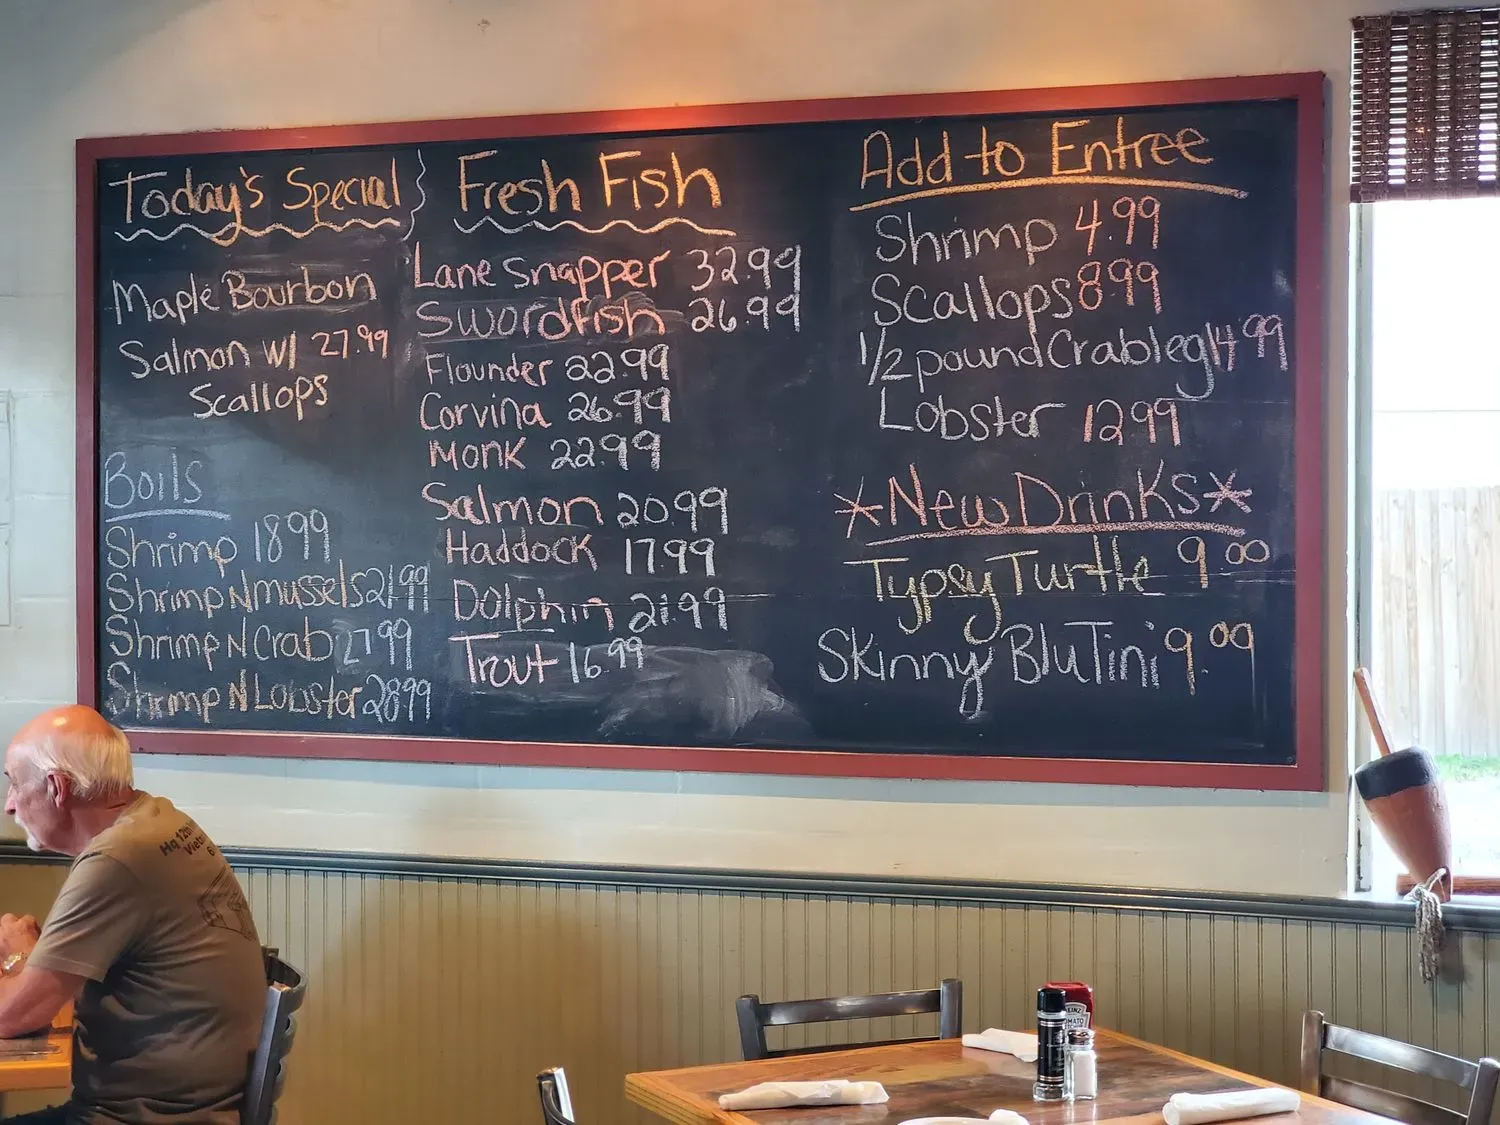 Today's Special
Maple Bourbon
Salmon w/ 27.99
Scallops
Boils
Shrimp 18.99
Shrimp N mussels 21.99
Shrimp N Crab 27.99
Shrimp N Lobster 28.99
Fresh Fish
Lane snapper 32.99
Swordfish 26.99
Flounder 22.99
Corvina 26.99
Monk 22.99
Salmon 20.99
Haddock 17.99
Dolphin 21.99
Trout 16.99
Add to Entree
Shrimp 4.99
Scallops 8.99
1/2 pound Crableg 14.99
Lobster 12.99
*New Drinks*
Typsy Turtle 9.00
Skinny BluTini 9.00
Hq 12th
HEINZ